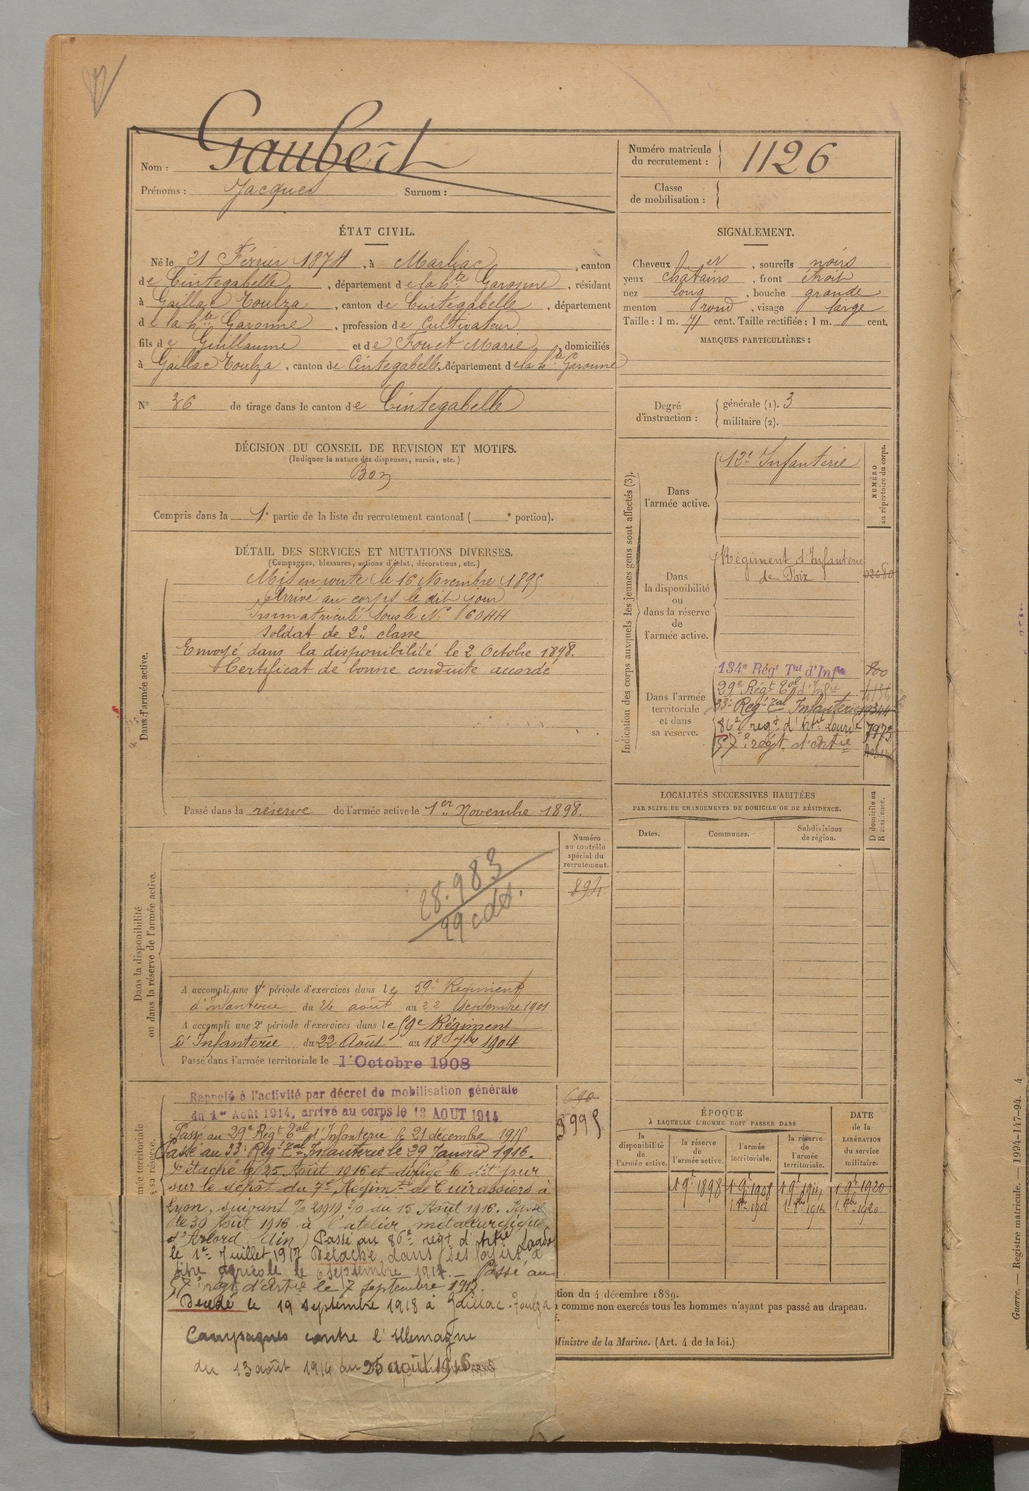 Nom : Gaubert
Prénoms : Jacques Surnom :
Numéro matricule du recrutement : 1126
Classe de mobilisation :
ÉTAT CIVIL.
Né le 21 Février 1874, à Marliac, canton
de Cintegabelle, département de la hte Garonne, résidant
à Gaillac Toulza, canton de Cintegabelle, département
de la hte Garonne, profession de Cultivateur
fils de Guillaume et de Fouet Marie, domiciliés
à Gaillac Toulza, canton de Cintegabelle, département de la hte Garonne
N° 36 de tirage dans le canton de Cintegabelle
SIGNALEMENT.
Cheveux et, sourcils noirs
yeux chatains, front étroit
nez long, bouche grande
menton rond, visage large
Taille : 1 m. 71 cent. Taille rectifiée : 1 m. cent.
MARQUES PARTICULIÈRES :
Degré d'instruction : générale (1). 3
militaire (2).
DÉCISION DU CONSEIL DE REVISION ET MOTIFS.
(Indiquer la nature des dispenses, sursis, etc.)
Bon
Compris dans la 1e partie de la liste du recrutement cantonal ( e portion).
DÉTAIL DES SERVICES ET MUTATIONS DIVERSES.
(Campagnes, blessures, actions d'éclat, décorations, etc.)
Dans l'armée active.
Mis en route le 16 Novembre 1895
Arrivé au corps le dit jour
immatriculé sous le N° 6044
soldat de 2e classe
Envoyé dans la disponibilité le 2 Octobre 1898.
Certificat de bonne conduite accordé
Passé dans la réserve de l'armée active le 1er Novembre 1898.
Indication des corps auxquels les jeunes gens sont affectés (3).
NUMÉRO au répertoire du corps.
Dans l'armée active.
12e Infanterie
Dans la disponibilité ou dans la réserve de l'armée active.
Régiment d'Infanterie
de Foix
Dans l'armée territoriale et dans sa réserve.
134e Régt Tal d'Infie
29e Régt Tal d'Infie
33e Régt Tal Infanterie
86e régt d'Artie Lourde 7973
57e régt d'Artie
LOCALITÉS SUCCESSIVES HABITÉES
PAR SUITE DE CHANGEMENTS DE DOMICILE OU DE RÉSIDENCE.
Dates. Communes. Subdivisions de région.
D domicile ou R résidence.
Dans la disponibilité ou dans la réserve de l'armée active.
Numéro au contrôle spécial du recrutement.
894
28.983
29 cds.
A accompli une 1e période d'exercices dans le 59e Régiment
d'infanterie du 26 août au 22 Septembre 1901
A accompli une 2e période d'exercices dans le 59e Régiment
d'Infanterie du 22 Août au 18 7bre 1904
Passé dans l'armée territoriale le 1er Octobre 1908
Rappelé à l'activité par décret de mobilisation générale
du 1er Août 1914, arrivé au corps le 13 AOUT 1914
3995
Passé au 29e Régt Tal d'Infanterie le 21 décembre 1915
Passé au 33e Régt Tal Infanterie le 29 Janvier 1916.
Détaché le 25 Août 1916 et dirigé le dit jour
sur le dépôt du 7e Régimt de Cuirassiers à
Lyon, suivant du 15 Août 1916. Passé
le 30 Août 1916 à l'atelier métallurgique
Passé au 86e régt d'Artie Lourde
le 1er Juillet 1917 Détaché dans ses foyers à
titre agricole le 6 septembre 1917. Passé au
57e régt d'Artie le 7 septembre 1917.
Décédé le 19 septembre 1918 à Gaillac-Toulza
Campagnes contre l'Allemagne
du 13 août 1914 au 25 août 1916
ÉPOQUE
À LAQUELLE L'HOMME DOIT PASSER DANS
la disponibilité de l'armée active. la réserve de l'armée active. l'armée territoriale. la réserve de l'armée territoriale.
DATE de la LIBÉRATION DU service militaire.
tion du 4 décembre 1889.
comme non exercés tous les hommes n'ayant pas passé au drapeau.
Ministre de la Marine. (Art. 4 de la loi.)
Guerre. — Registre matricule. — 1994-147-94. 4.